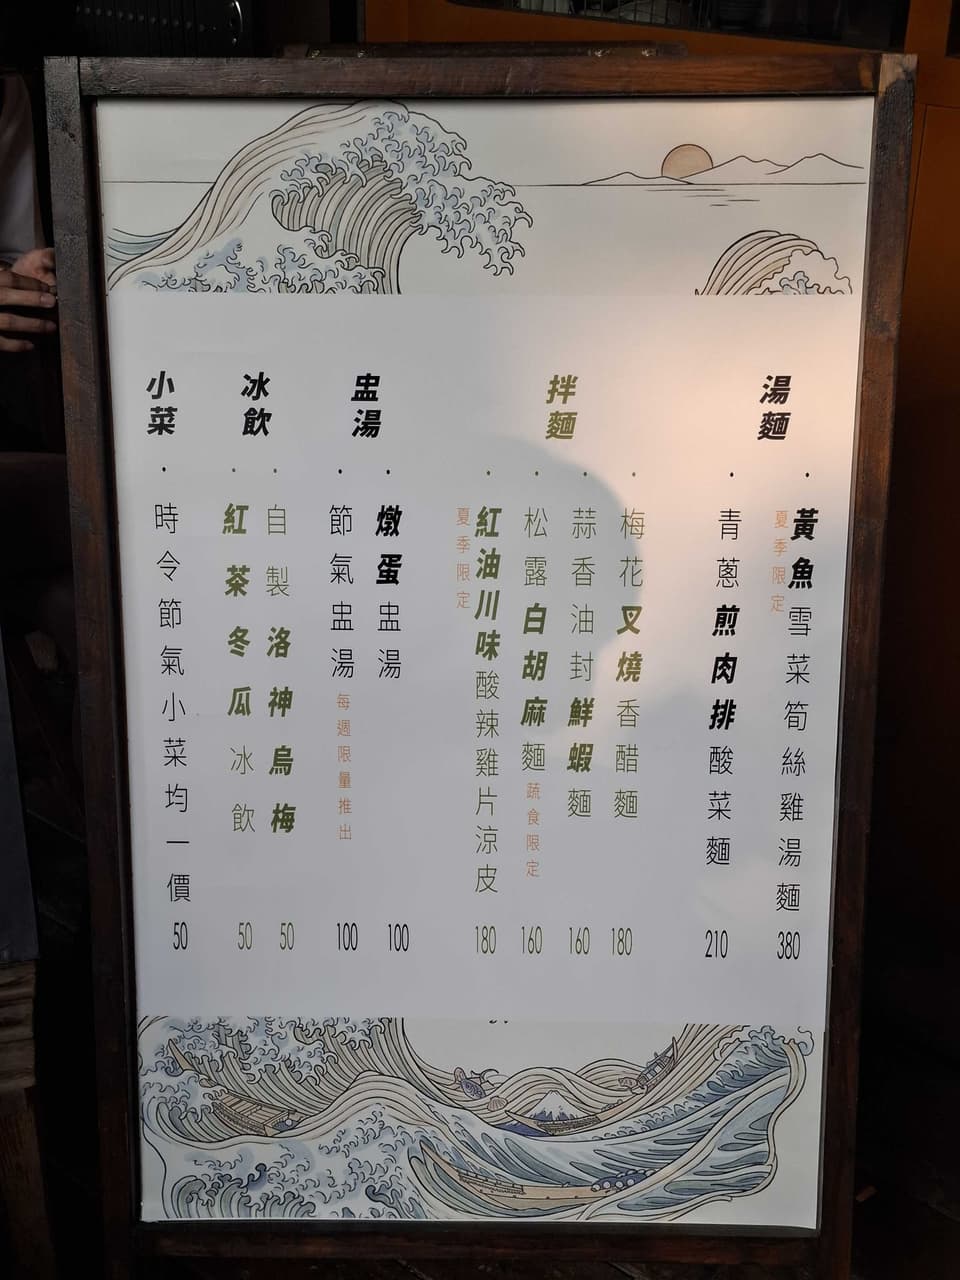 湯麵
黃魚雪菜筍絲雞湯麵
夏季限定
380
青蔥煎肉排酸菜麵
210
拌麵
梅花叉燒香醋麵
180
蒜香油封鮮蝦麵
160
松露白胡麻麵
蔬食限定
160
紅油川味酸辣雞片涼皮
夏季限定
180
盅湯
燉蛋盅湯
100
節氣盅湯
每週限量推出
100
冰飲
自製洛神烏梅
50
紅茶冬瓜冰飲
50
小菜
時令節氣小菜均一價
50